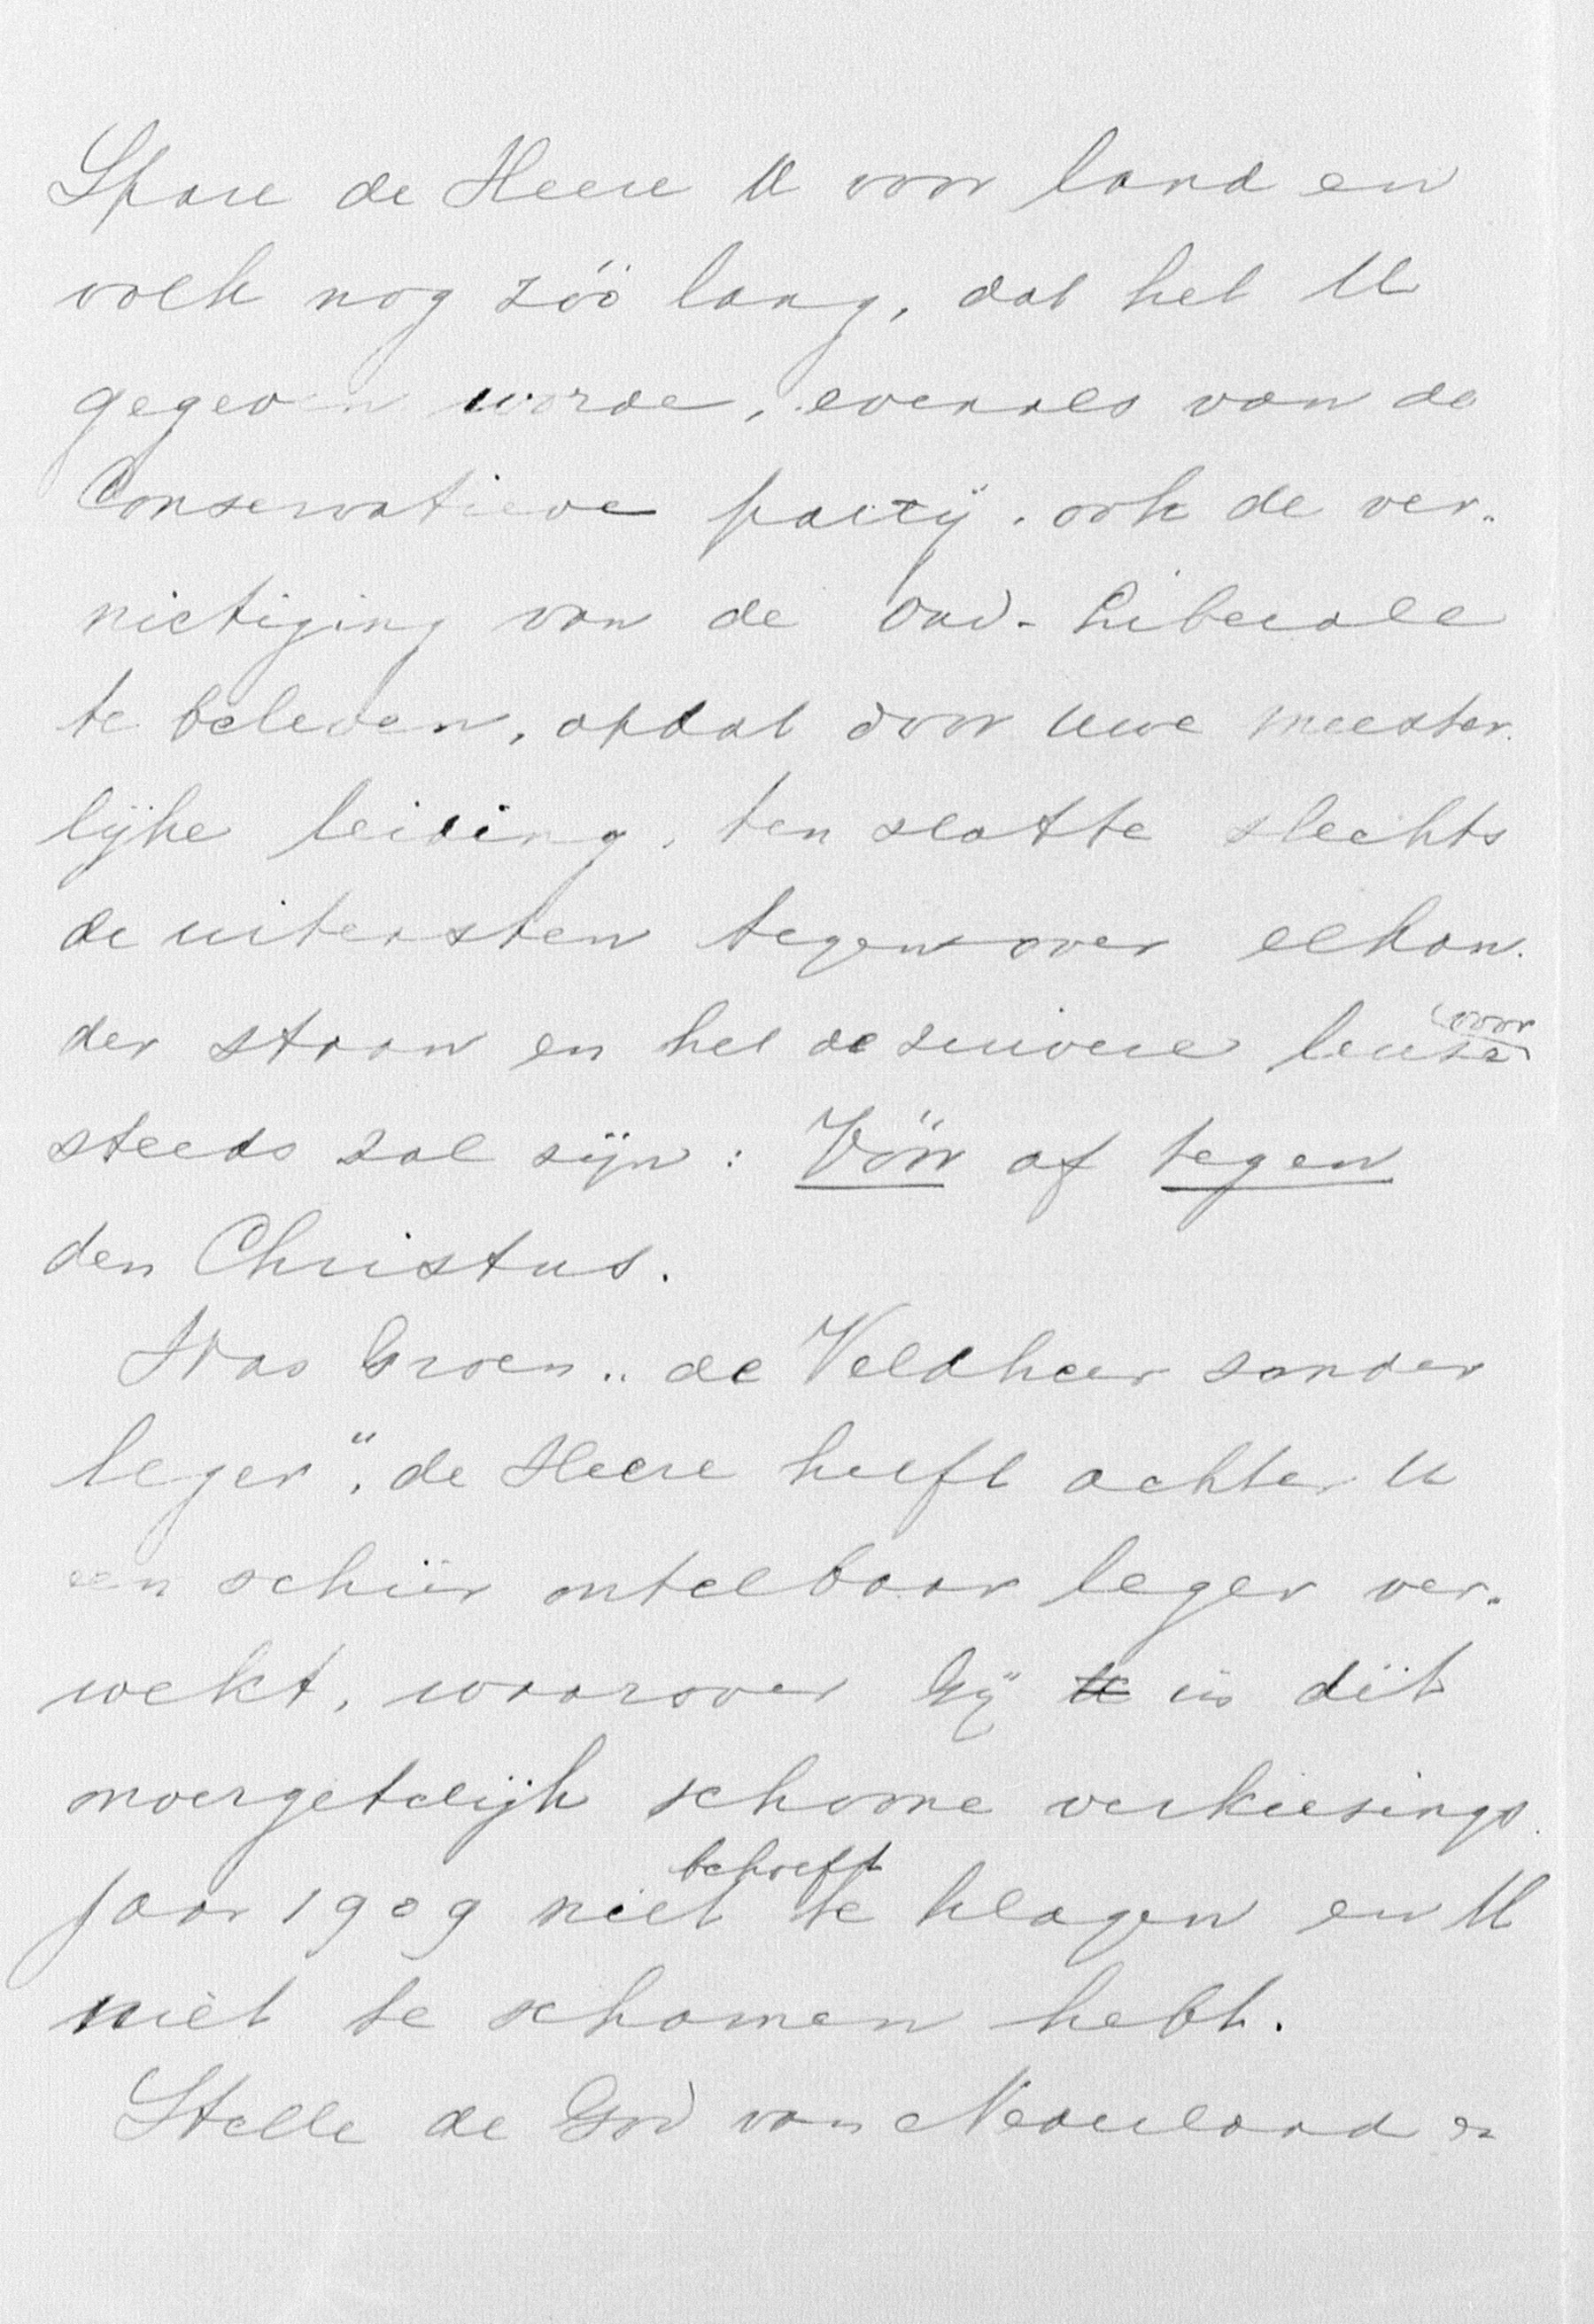 Spare de Heere U voor land en
volk nog zóó lang, dat het U
gegeven worde, evenals van de
Conservatieve partij, ook de ver-
nietiging van de Oud-Liberale
te beleven, opdat door Uwe meester-
lijke leiding, ten slotte slechts
de uitersten tegenover elkan-
der staan en het de zuivere leuze voor
steeds zal zijn: Vóór of tegen
den Christus.
Was Groen „de Veldheer zonder
leger", de Heere heeft achter U
een schier ontelbaar leger ver-
wekt, waarover Gij U in dit
onvergetelijk schoone verkiezings-
jaar 1909 niet behoeft te klagen en U
niet te schamen hebt.
Stelle de God van Nederland en